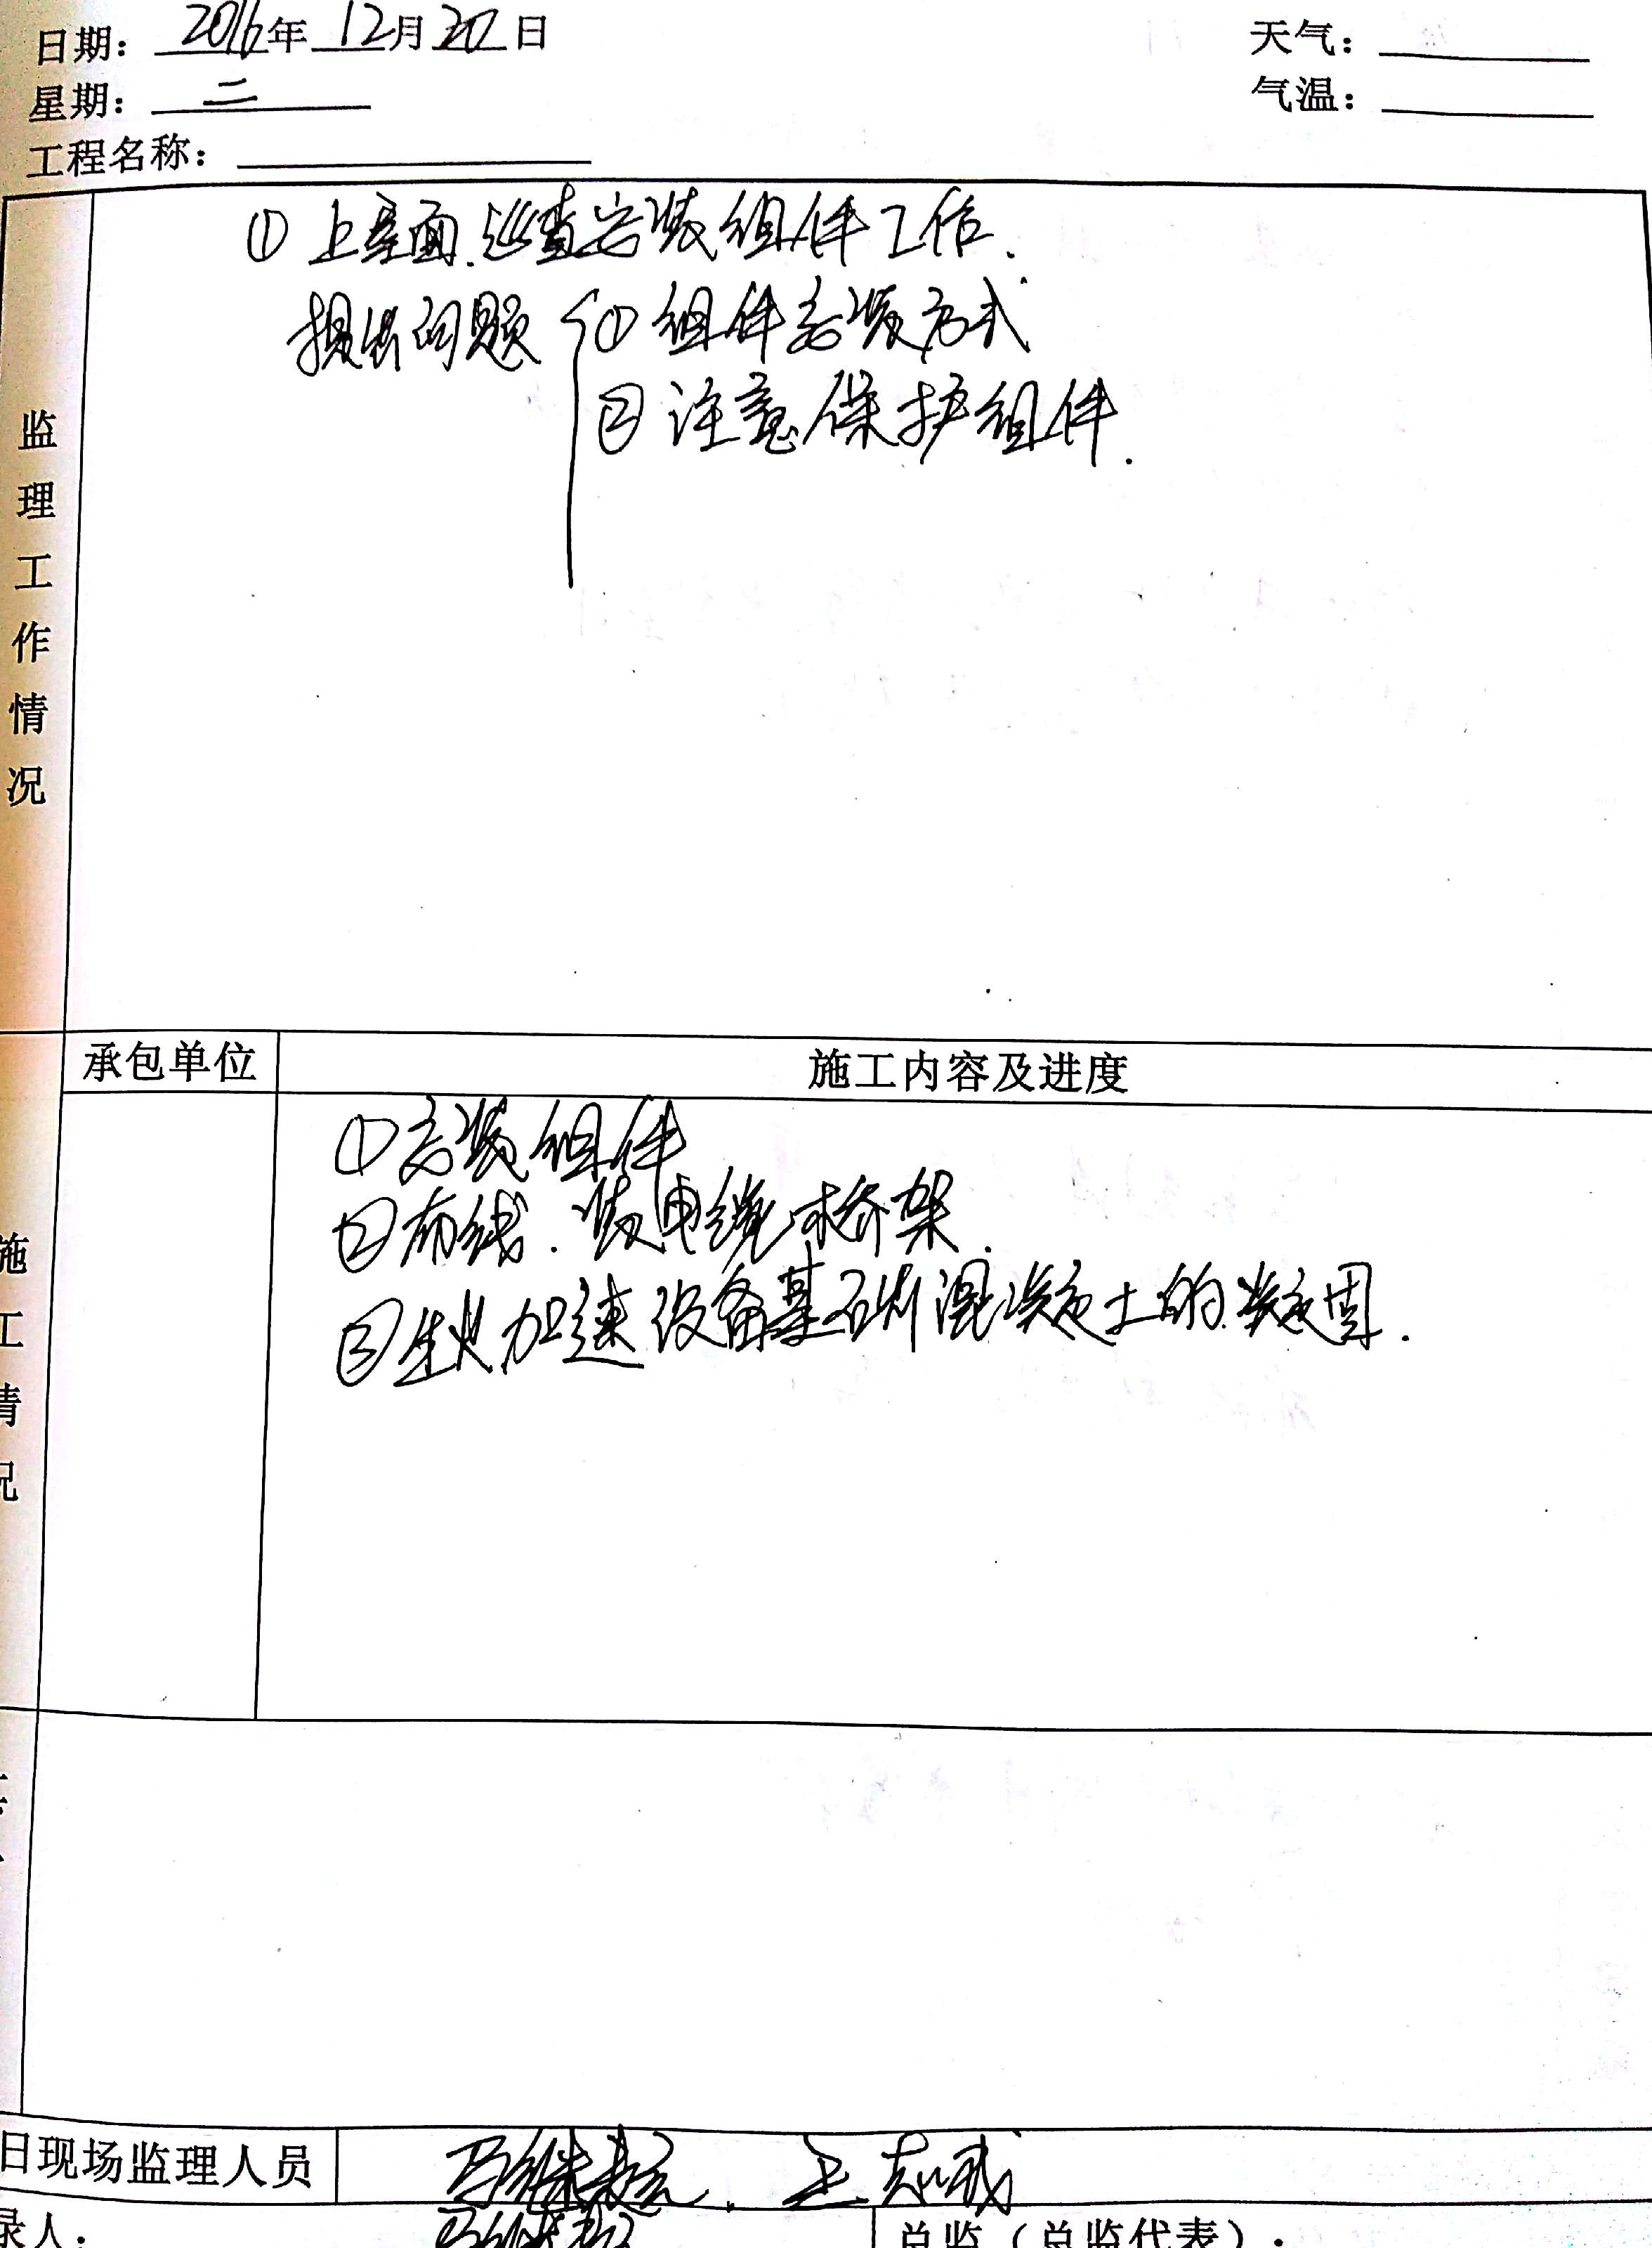 日期: 2016年12月20日
天气:
星期: 二
气温:
工程名称:
监理工作情况
① 上屋面.巡查安装组件工作.
提出问题 { ① 组件安装方式
② 注意保护组件.
承包单位 施工内容及进度
施工情况
①安装组件
②布线.装电缆桥架.
③生火加速设备基础混凝土的凝固.
日现场监理人员
录人:
总监(总监代表):